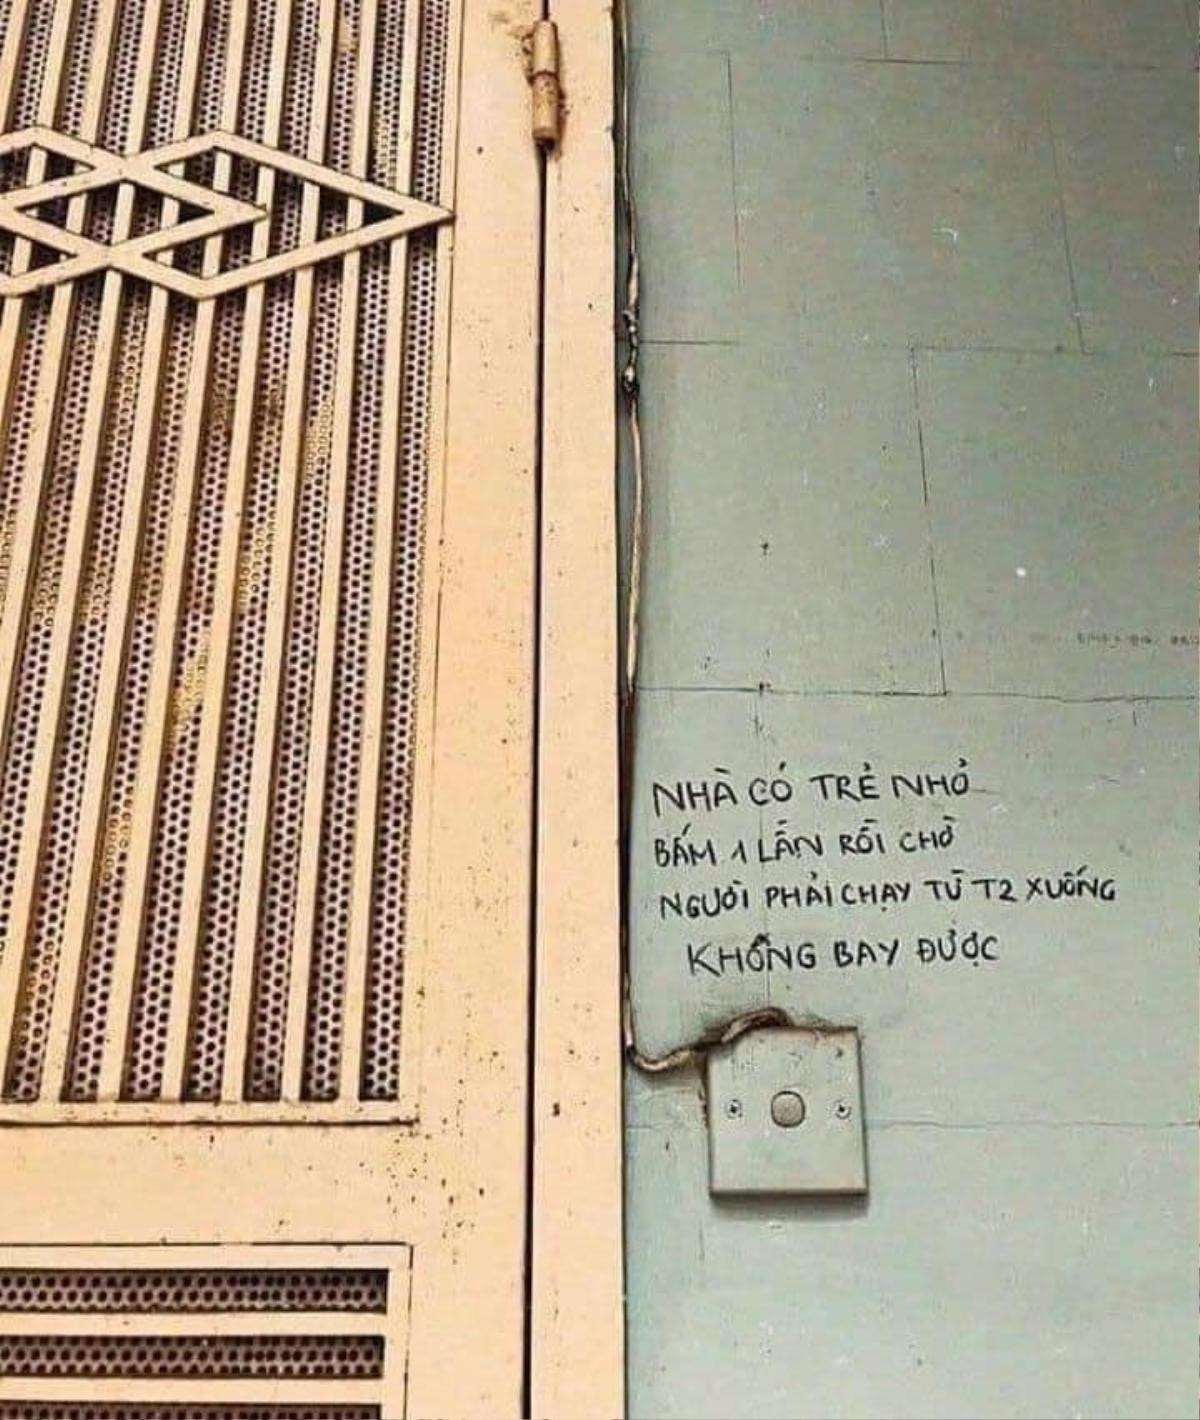 NHÀ CÓ TRẺ NHỎ
BẤM 1 LẦN RỒI CHỜ
NGƯỜI PHẢI CHẠY TỪ T2 XUỐNG
KHÔNG BAY ĐƯỢC